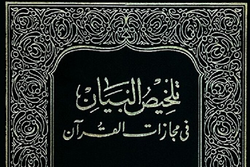 تلخيص البيان
في مجازات القرآن